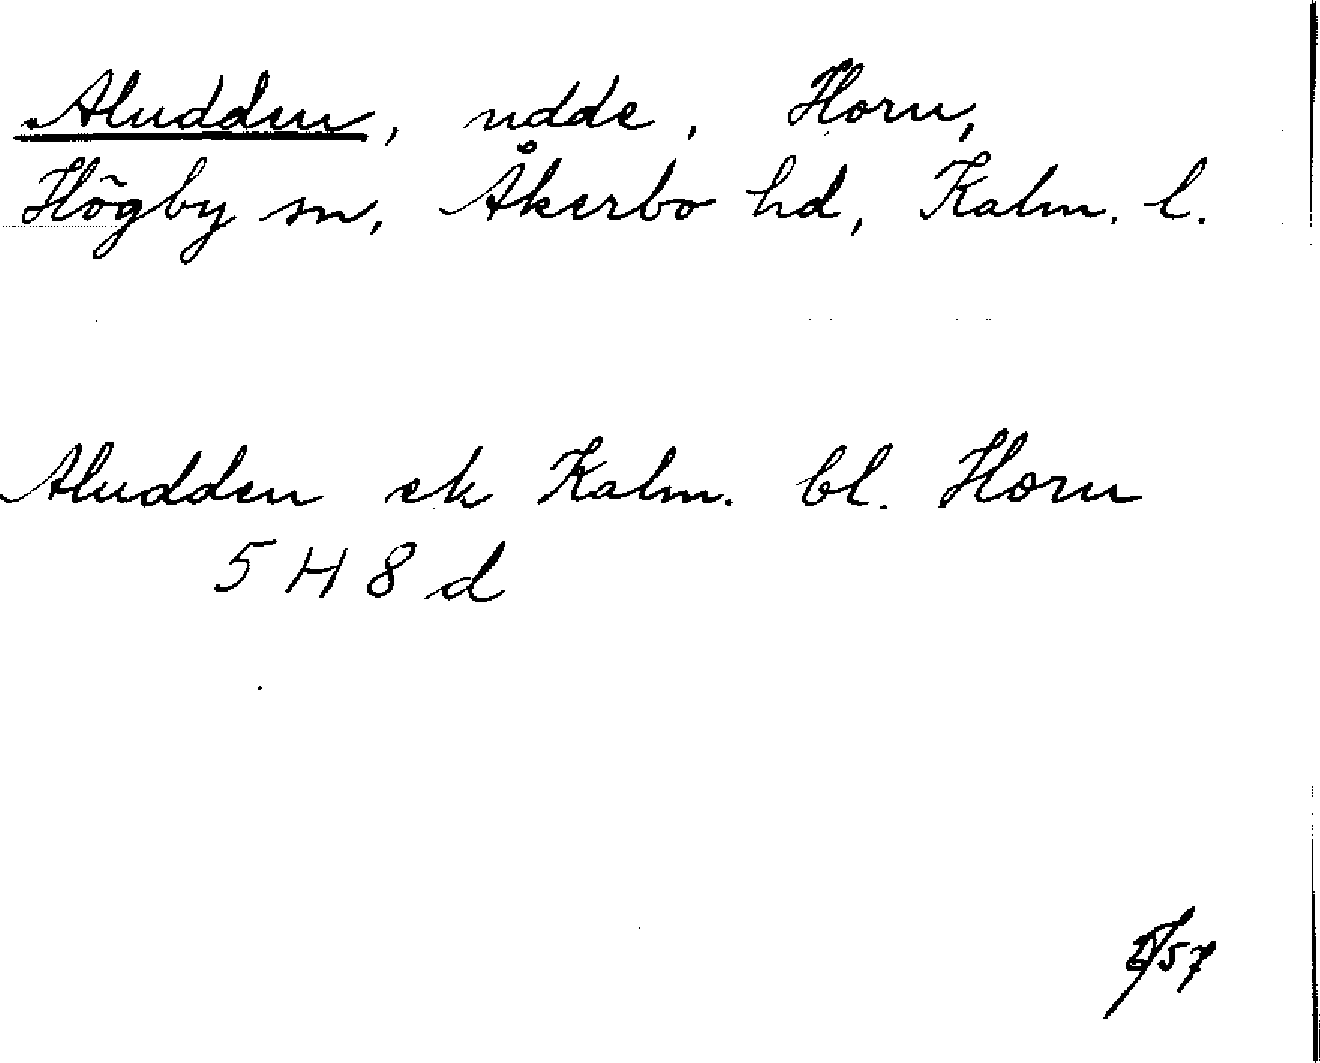 Aludden, udde, Horn,
Högby sn, Åkerbo hd, Kalm. l.
Aludden ek Kalm. bl. Horn
5 H 8 d